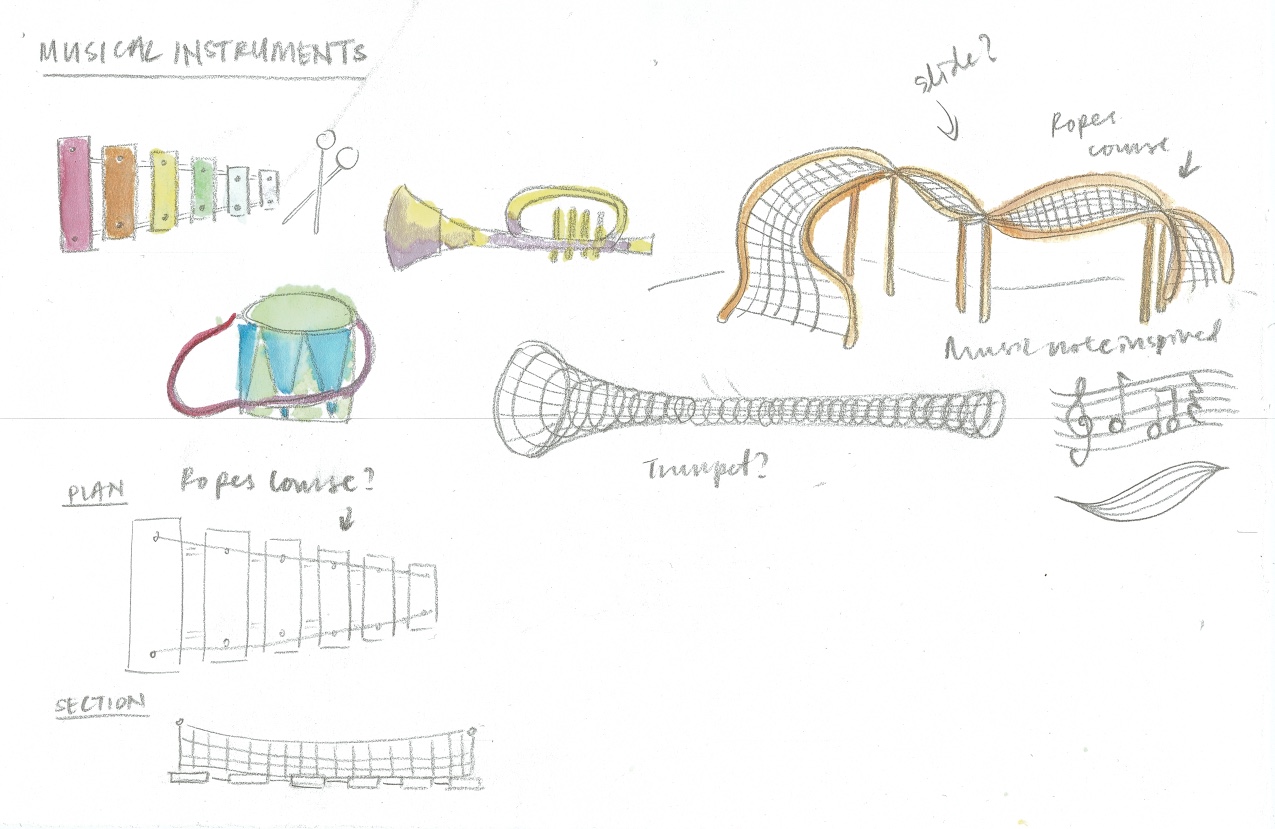 MUSICAL INSTRUMENTS
slide?
Ropes
course
Music note inspired
Trumpet?
Ropes course?
PLAN
SECTION